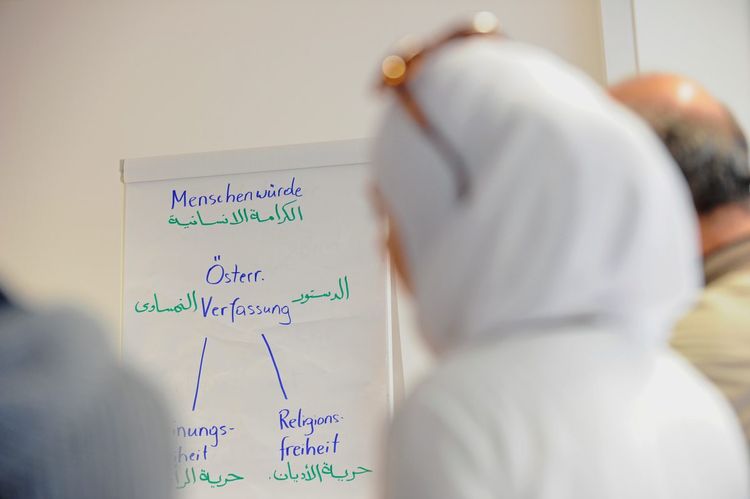 Menschenwürde
الكرامة الانسانية
Österr.
الدستور Verfassung النمساوى
nungs-
heit
حرية الرأ
Religions-
freiheit
حرية الأديان.